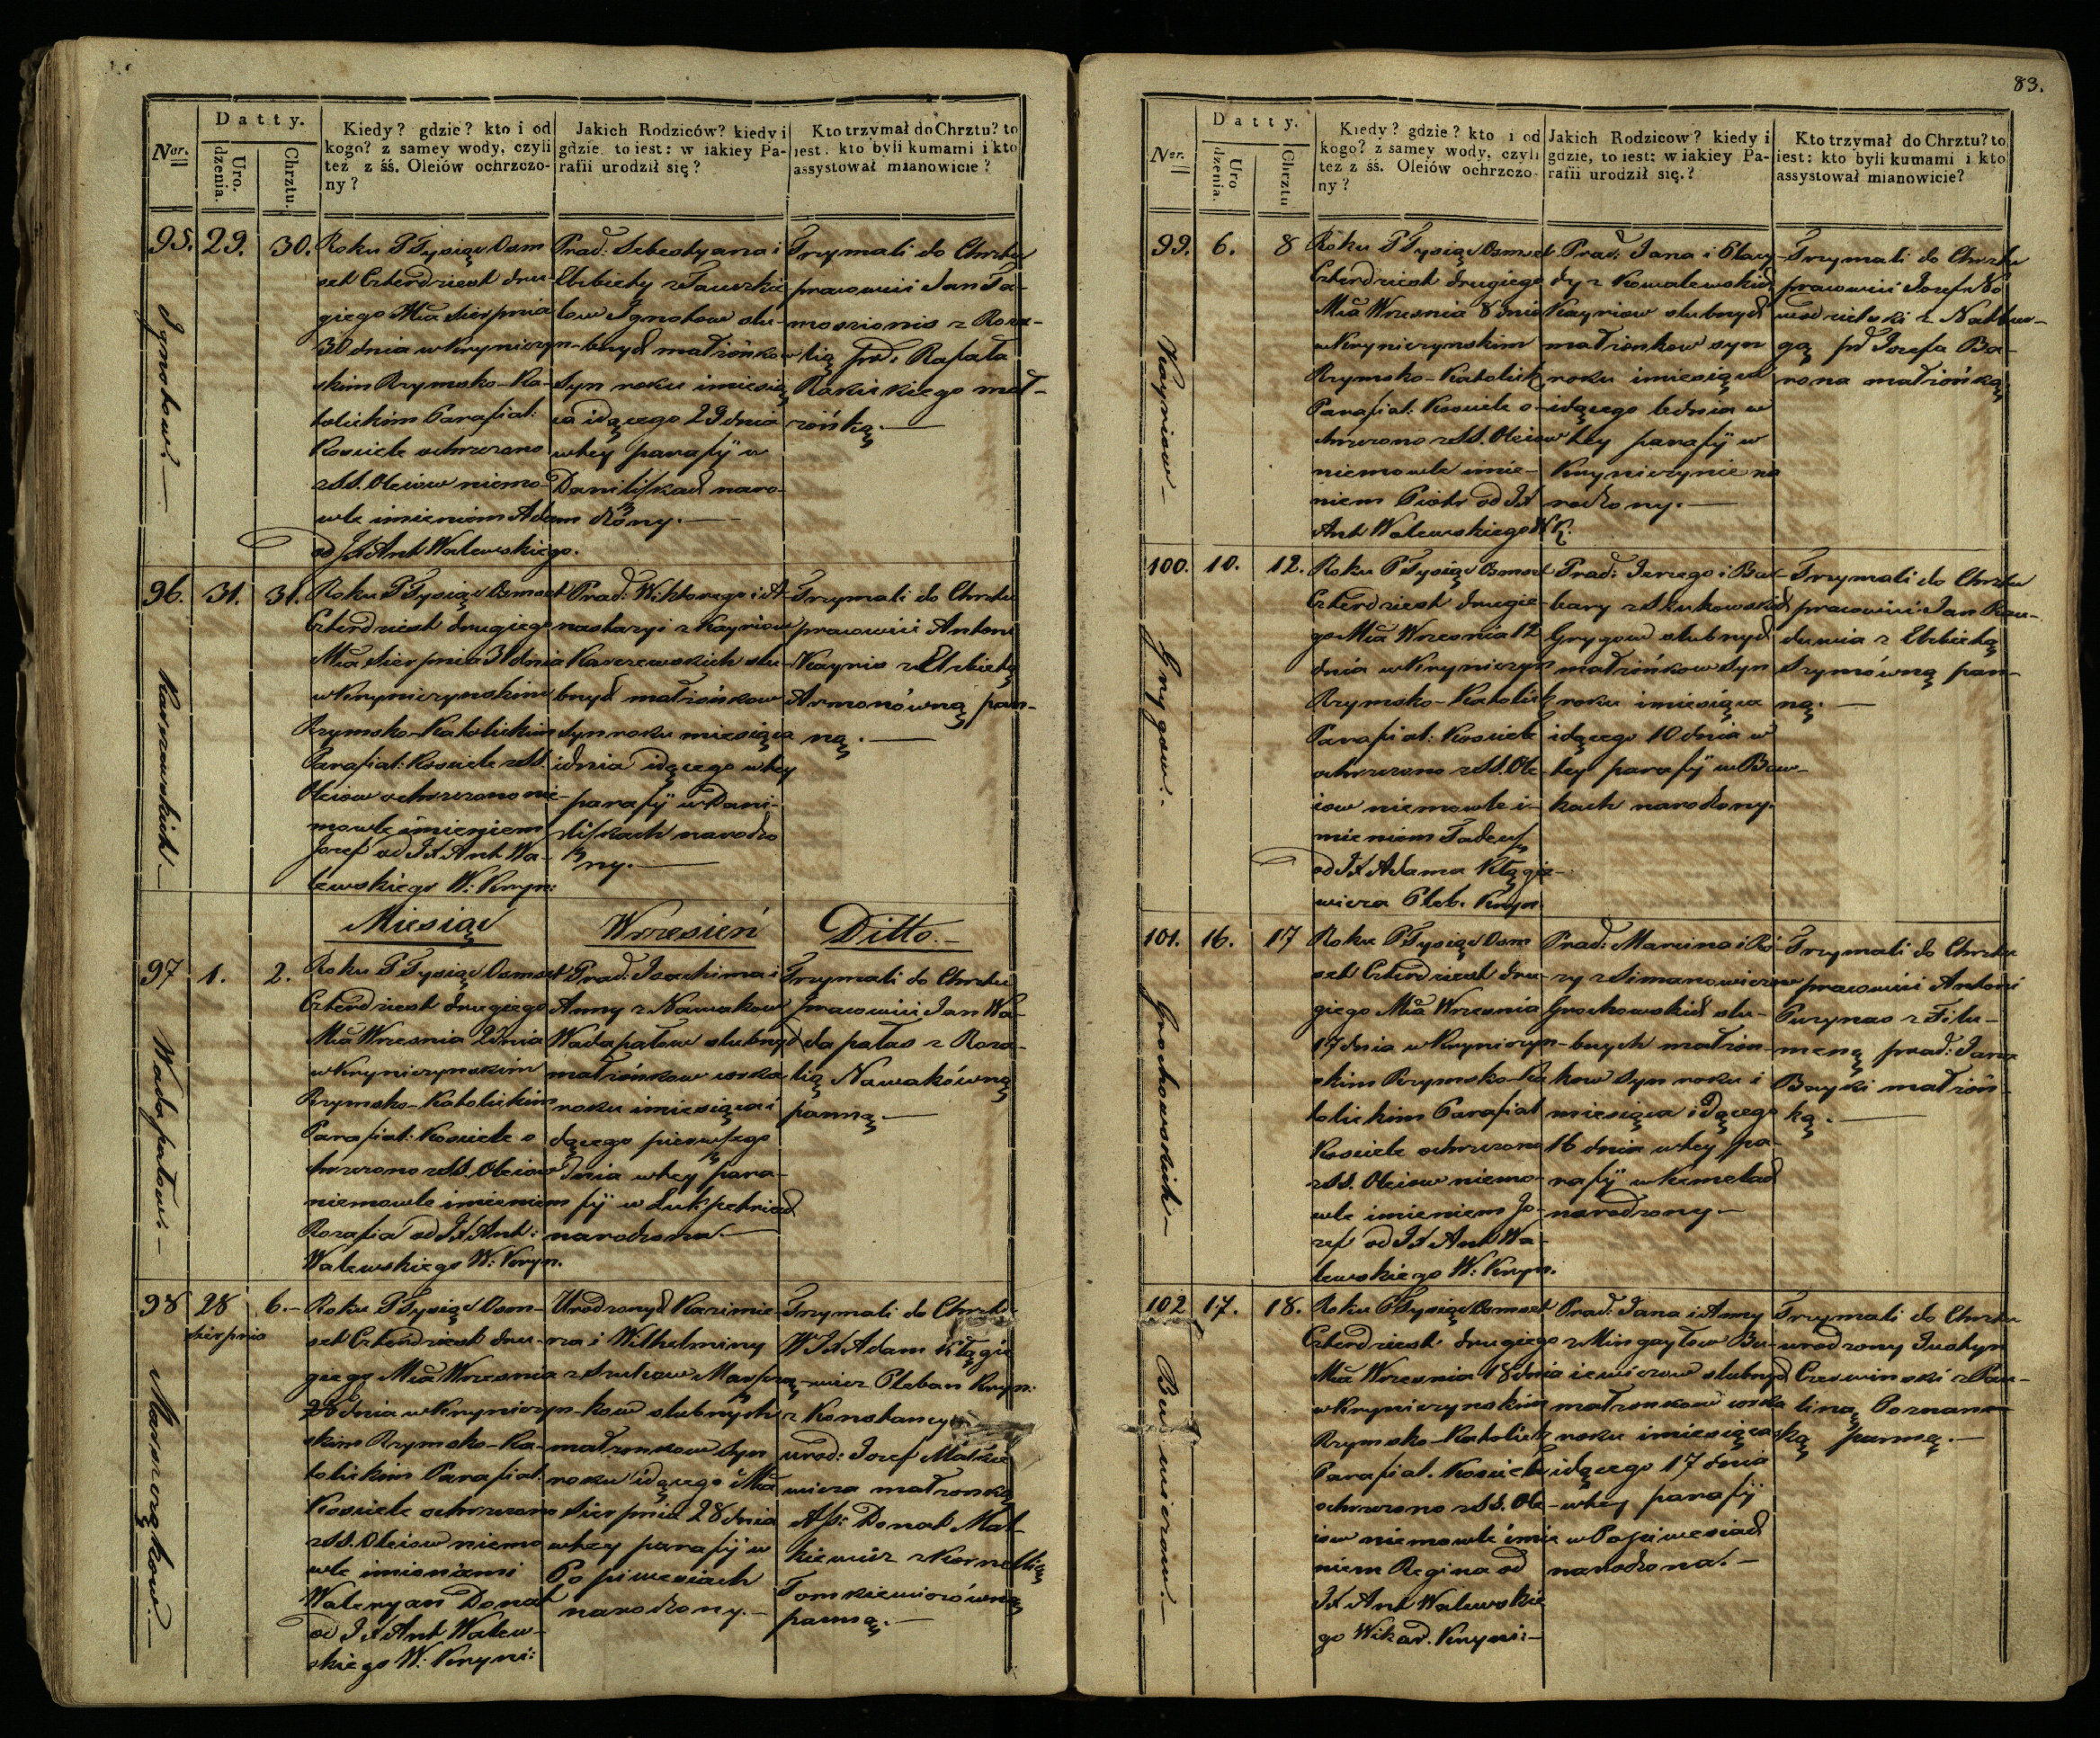 Datty.
Ner.
Uro.
dzenia.
Chrztu.
Kiedy? gdzie? kto i od
kogo? z samey wody, czyli
też z śś. Oleiów ochrzczo-
ny?
Jakich Rodziców? kiedy i
gdzie, to iest: w iakiey Pa-
rafii urodził się?
Kto trzymał do Chrztu? to
iest: kto byli kumami i kto
assystował mianowicie?
95. 29. 30.
Ignatow.
Roku P Tysiąc Osm
set Czterdziest dru-
giego Mca Sierpnia
30 dnia w Kryniczyn-
skim Rzymsko-Ka-
tolickim Parafial:
Kosciele ochrzczono
z SS. Oleiow niemo-
wle imieniem Adam
od JX Ant Walewskiego.
Prad: Sebestyana i
Elzbiety z
tow Ignatow slu-
bnych małżonkow
Syn roku i miesią
ca idącego 29 dnia
w tey parafij w
Daniliszkach naro-
dzony.
Trzymali do Chrztu
pracowici Jan To-
maszionis z Roza-
lią prd: Rafała
Rokickiego mał-
żonką.
96. 31. 31.
Karczewskich
Roku P Tysiąc Osmset
Czterdziest drugiego
Mca Sierpnia 31 dnia
w Krynieczynskim
Rzymsko-Katolickim
Parafial: Kosciele z SS.
Oleiow ochrzczono nie-
mowle imieniem
Jozef od JX Ant Wa-
lewskiego W: Kryn:
Prad: Wiktorego i A-
nastazyi z Kayriow
Karczewskich slu-
bnych małżonkow
Syn roku miesiąca
i dnia idącego w tey
parafij w Dani-
liszkach narodzo
ny.
Trzymali do Chrztu
pracowici Antoni
Kayris z Elzbietą
Armonówną pan-
ną.
Miesiąc Wrzesień Ditto.
97 1. 2.
Wadapałow.
Roku P Tysiąc Osmset
Czterdziest drugiego
Mca Wrzesnia 2 dnia
w Krynieczynskim
Rzymsko-Katolickim
Parafial: Kosciele o
chrzczono z SS. Oleiow
niemowle imieniem
Rozalia od JX Ant:
Walewskiego W: Kryn.
Prad: Joachima i
Anny z Nowakow
Wadapałow slubnych
małżonkow corka
roku i miesiąca i
dącego pierwszego
dnia w tey para-
fij w Lukpetriach
narodzona.
Trzymali do Chrztu
pracowici Jan Wa-
dapałas z Roza-
lią Nowakówną
panną.
98 28 Sierpnia 6.
Marszczakow.
Roku P Tysiąc Osm-
set Czterdziest dru-
giego Mca Wrzesnia
dnia w Krynieczyn-
skim Rzymsko-Ka-
tolickim Parafial.
Kosciele ochrzczono
z SS. Oleiow niemo
wle imionami
Waleryan Donat
od JX Ant Walew-
skiego W: Kryni:
Urodzonych Kazimie-
rza i Wilhelminy
kow slubnych
małzonkow Syn
roku idącego Mca
Sierpnia 28 dnia
w tey parafij w
Popiwesiach
narodzony.
Trzymali do Chrztu
WJX Adam Kłągie
wicz Pleban Kryn:
z Konstancyą
urod: Jozef Mackie
wicza małzonką
Ass: Donat Mac-
kiewicz z Kornelią
Tomkiewiczówną
panną.
83.
Datty.
Ner.
Uro
dzenia.
Chrztu
Kiedy? gdzie? kto i od
kogo? z samey wody, czyli
też z śś. Oleiów ochrzczo-
ny?
Jakich Rodzicow? kiedy i
gdzie, to iest: w iakiey Pa-
rafii urodził się.?
Kto trzymał do Chrztu? to
iest: kto byli kumami i kto
assystował mianowicie?
99. 6. 8
Kayriow
Roku P Tysiąc Osmset
Czterdziest drugiego
Mca Wrzesnia 8 dnia
w Krynieczynskim
Rzymsko-Katolick
Parafial: Kosciele o-
chrzczono z SS. Oleiow
niemowle imie-
niem Piotr od JX
Ant Walewskiego W K.
Prad: Jana i Otocy-
dy z Kowalewskich
Kayriow slubnych
małzonkow syn
roku i miesiąca
idącego 6 dnia w
tey parafij w
Krynieczynie na
rodzony.
Trzymali do Chrztu
pracowici Jozef
z
gą prd Jozefa Ba-
rona małżonką
100. 10. 12.
Grygow.
Roku P Tysiąc Osmset
Czterdziest drugie-
go Mca Wrzesnia 12
dnia w Krynieczyn
Rzymsko-Katolick
Parafial: Kosciele
ochrzczono z SS. Ole-
iow niemowle i-
mieniem Tadeusz
od JX Adama Kłągie-
wicza Pleb. Kryn.
Prad: Jerzego i Bar-
bary z Skukowskich
Grygow slubnych
małżonkow Syn
roku i miesiąca
idącego 10 dnia w
tey parafij w
kach narodzony.
Trzymali do Chrztu
pracowici Jan
z Elzbietą
Szymówną pan-
ną.
101. 16. 17
Grochowskich
Roku P Tysiąc Osm
set Czterdziest dru-
giego Mca Wrzesnia
17 dnia w Krynieczyn-
skim Rzymsko-Ka
tolickim Parafial
Kosciele ochrzczono
z SS. Oleiow niemo-
wle imieniem Jo-
zef od JX Ant Wa-
lewskiego W: Kryn.
Prad: Marcina i Ró-
zy z Simanowiczow
Grochowskich slu-
bnych małżon-
kow Syn roku i
miesiąca idącego
16 dnia w tey pa-
rafij w Kimelach
narodzony.
Trzymali do Chrztu
pracowici Antoni
Purynas z Filo-
meną prad: Jana
małżon-
ką.
102 17. 18.
Roku P Tysiąc Osmset
Czterdziest drugiego
Mca Wrzesnia 18 dnia
w Krynieczynskim
Rzymsko-Katolick
Parafial. Kosciele
ochrzczono z SS. Ole-
iow niemowle imie
niem Regina od
JX Ant Walewskie
go Wikar. Kryni:
Prad: Jana i Anny
z Mingayłow Bu-
iewiczow slubnych
małzonkow corka
roku i miesiąca
idącego 17 dnia
w tey parafij
w Popiwesiach
narodzona.
Trzymali do Chrztu
urodzony Justyn
Czerwinski z Pau-
liną Poznan
ką panną.